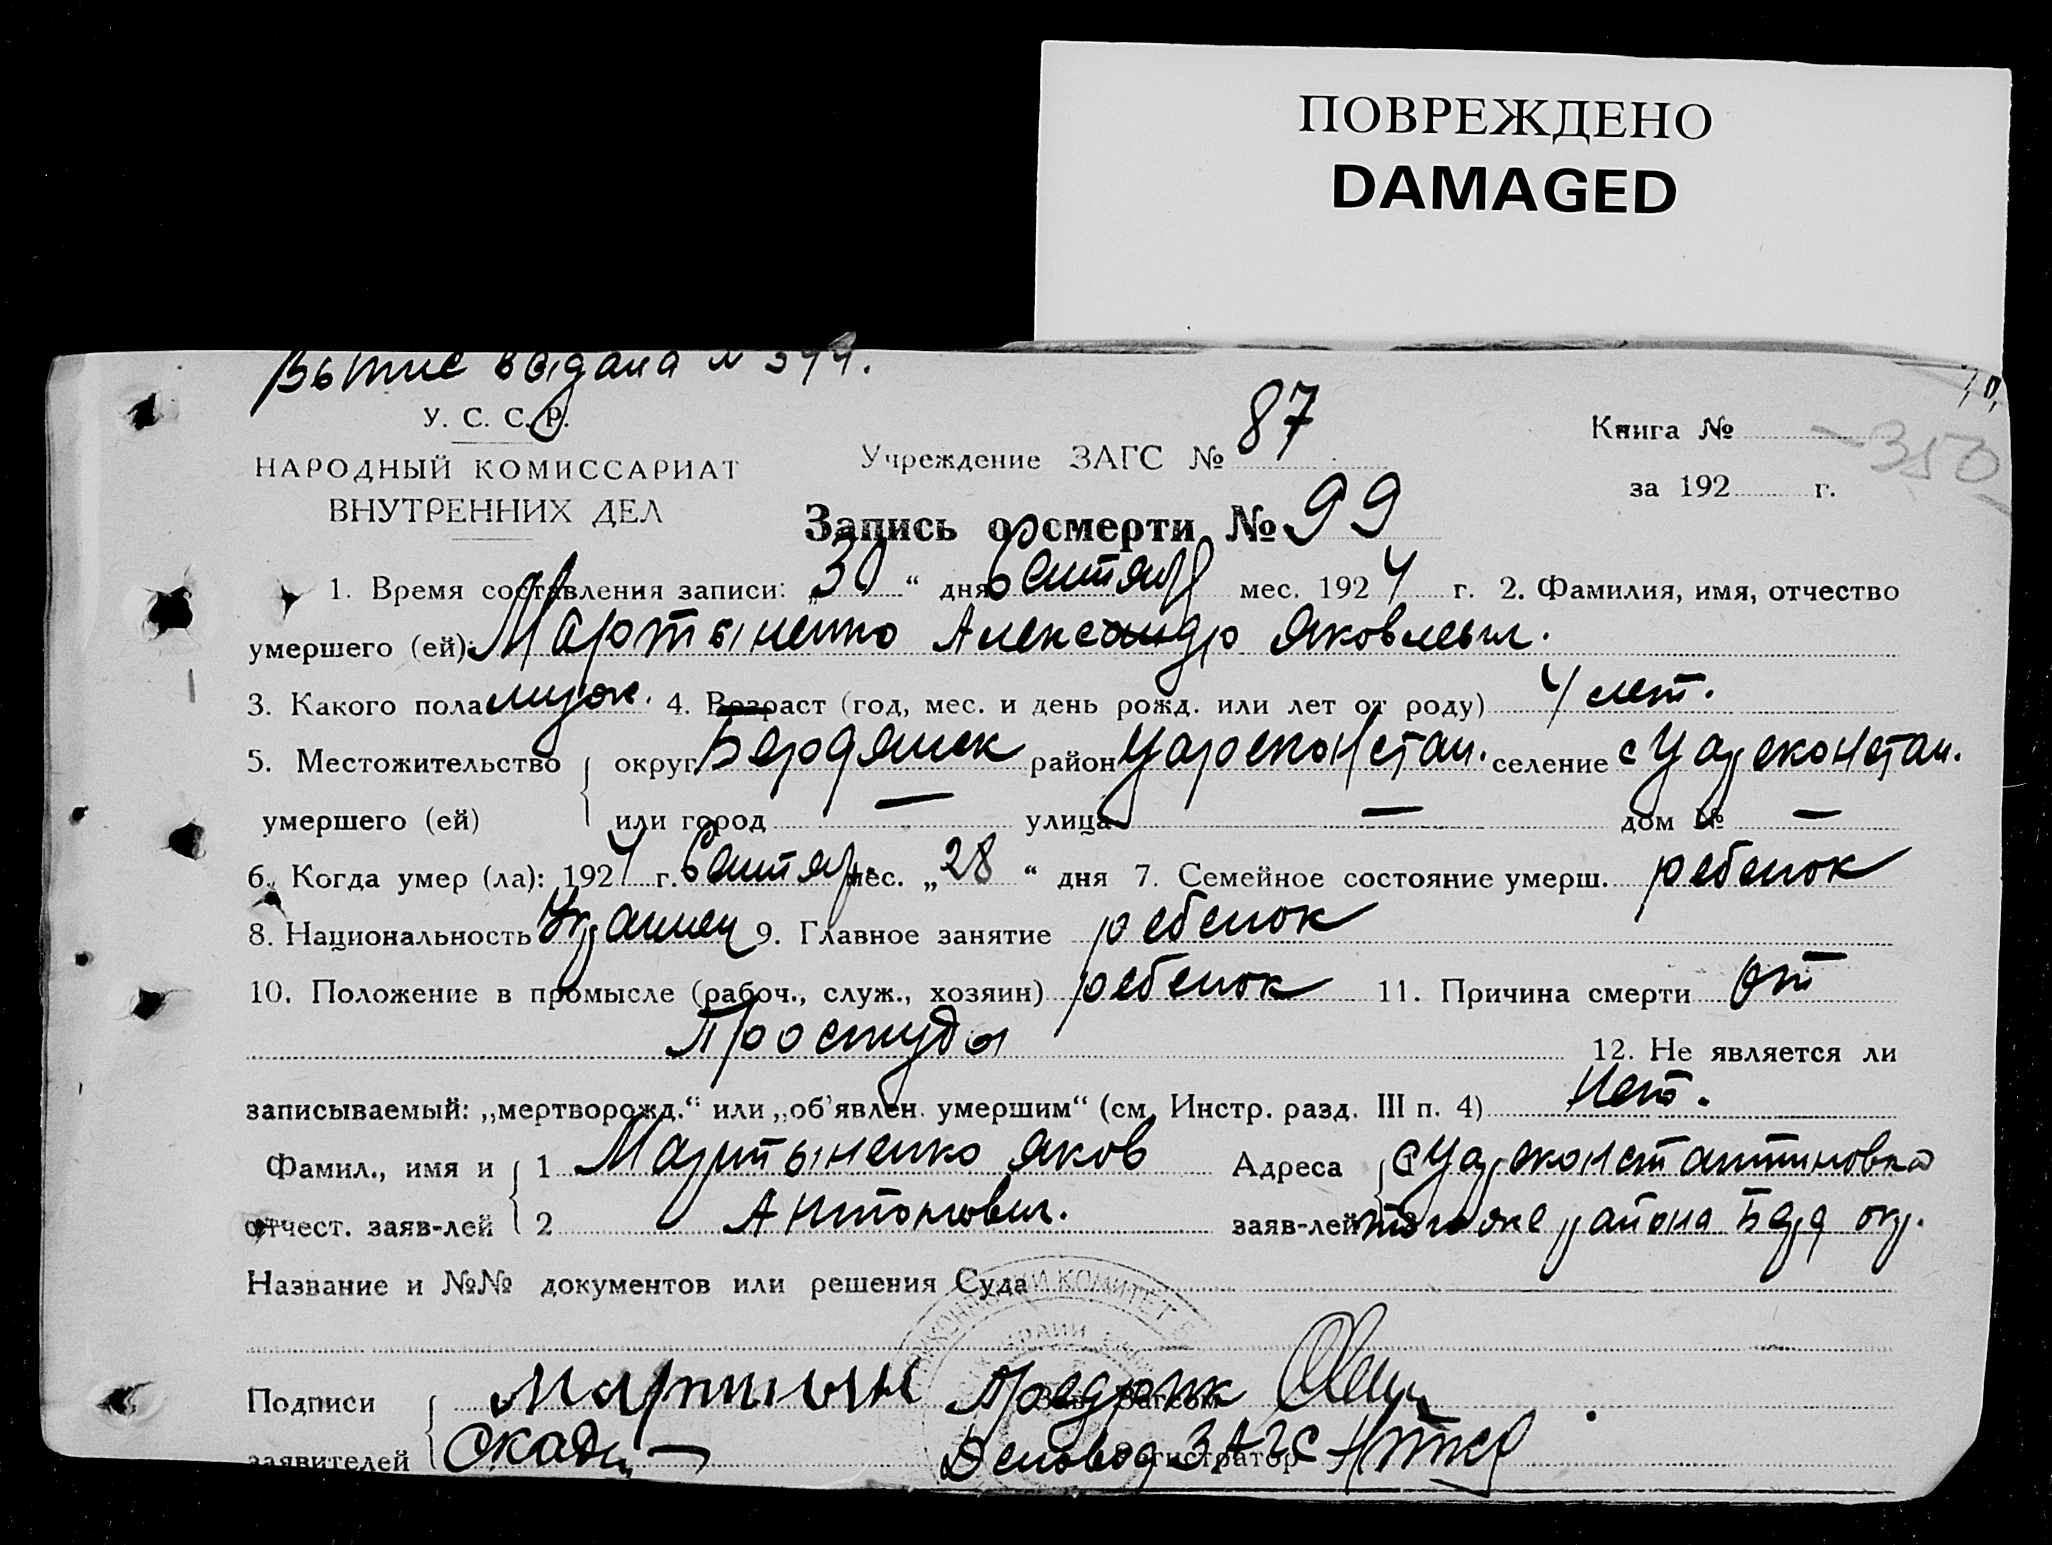 ПОВРЕЖДЕНО
DAMAGED
выдана №
У. С. С. Р.
НАРОДНЫЙ КОМИССАРИАТ
ВНУТРЕННИХ ДЕЛ
Учреждение ЗАГС № 87
Книга № 350
за 192 г.
Запись о смерти № 99
1. Время составления записи: „30“ дня Сентяб мес. 1924 г. 2. Фамилия, имя, отчество
умершего (ей): Мартыненко Александр Яковлевич.
3. Какого пола мужс. 4. Возраст (год, мес. и день рожд. или лет от роду) 4 лет.
5. Местожительство округ Бердянск район Цареконстан. селение с Цареконстан.
умершего (ей) или город — улица — дом № —
6. Когда умер (ла): 1924 г. Сентяб мес. „28“ дня 7. Семейное состояние умерш. ребенок
8. Национальность Украинец 9. Главное занятие ребенок
10. Положение в промысле (рабоч., служ., хозяин) ребенок 11. Причина смерти от
Простуды
12. Не является ли
записываемый: „мертворожд.“ или „об'явлен. умершим“ (см. Инстр. разд. III п. 4) Нет.
Фамил., имя и 1 Мартыненко Яков Адреса с Цареконстантиновка
отчест. заяв-лей 2 Антонович. заяв-лей того же района Берд окр.
Название и №№ документов или решения Суда
КОМИТЕТ
Подписи Мартын Предрик
заявителей Деловод ЗАГС